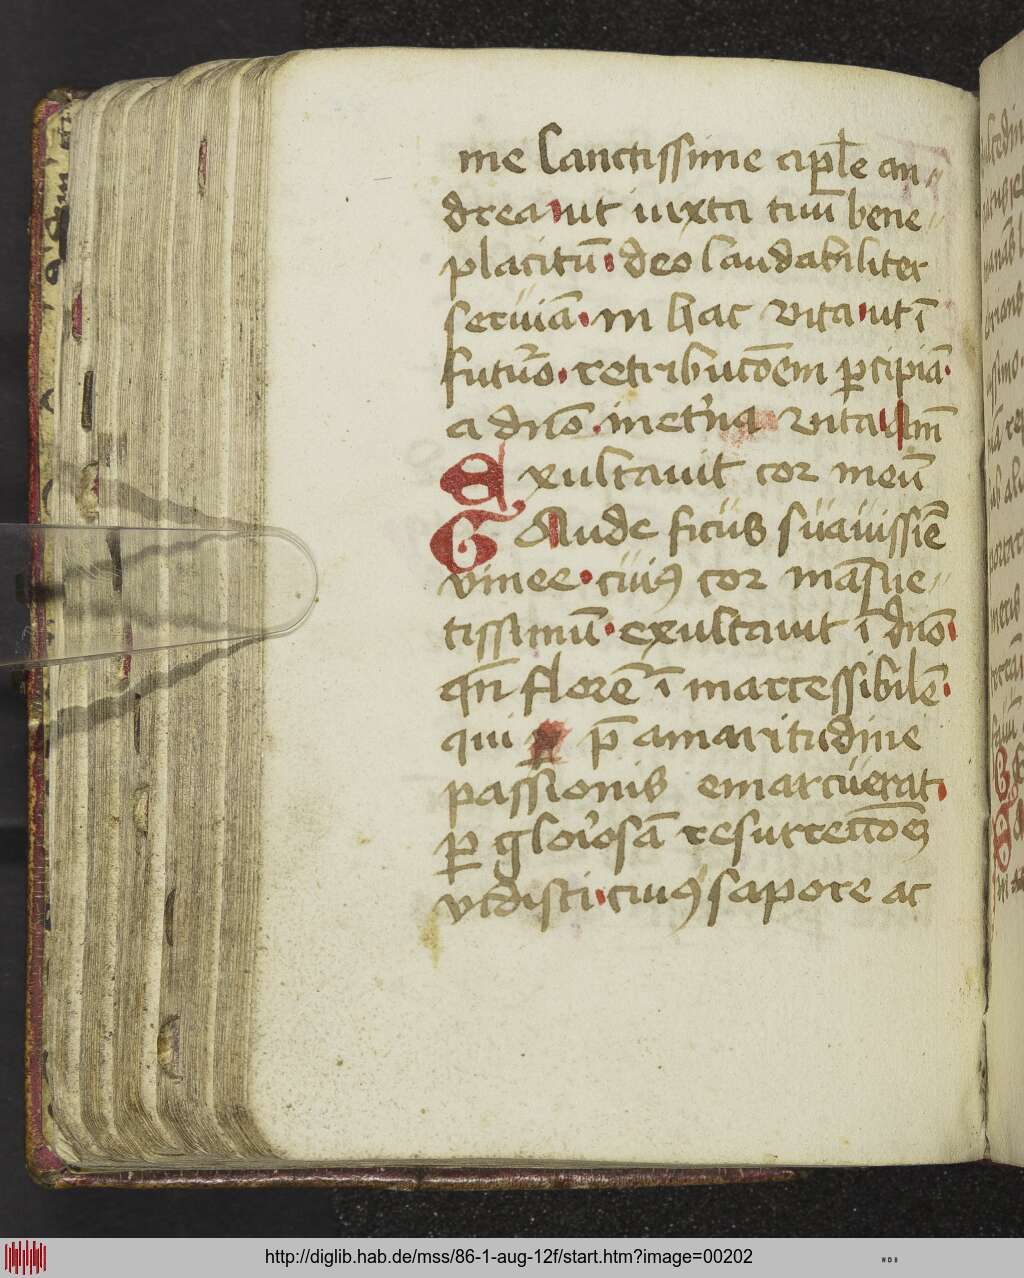 me Sanctissime apl̄e an„
drea ut iuxta tuū bene„
placitū deo laudabiliter
seruiā in hac vita ut ī
futuro retribucōem ꝑcipiā
a dño in et'na vita Am̄
Exultauit cor meū
GAude ficus suauissīe
vinee cuiꝯ cor māsue„
tissimū exultauit ī dño
qn̄ florē ī marcessibilē
qui p̄ amaritudine
passionis emarcuerat
ꝑ gloriosā resurrectōeꝫ
vidisti cuiꝯ sapore ac
http://diglib.hab.de/mss/86-1-aug-12f/start.htm?image=00202